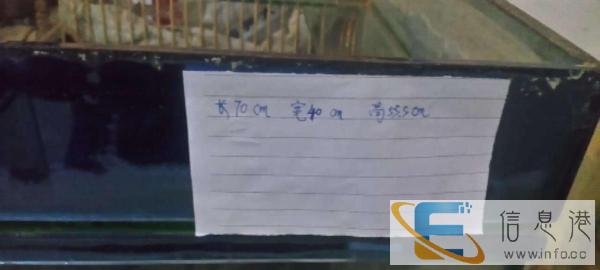 长70cm 宽40cm 高55.5cm
信息港
www.info.cc